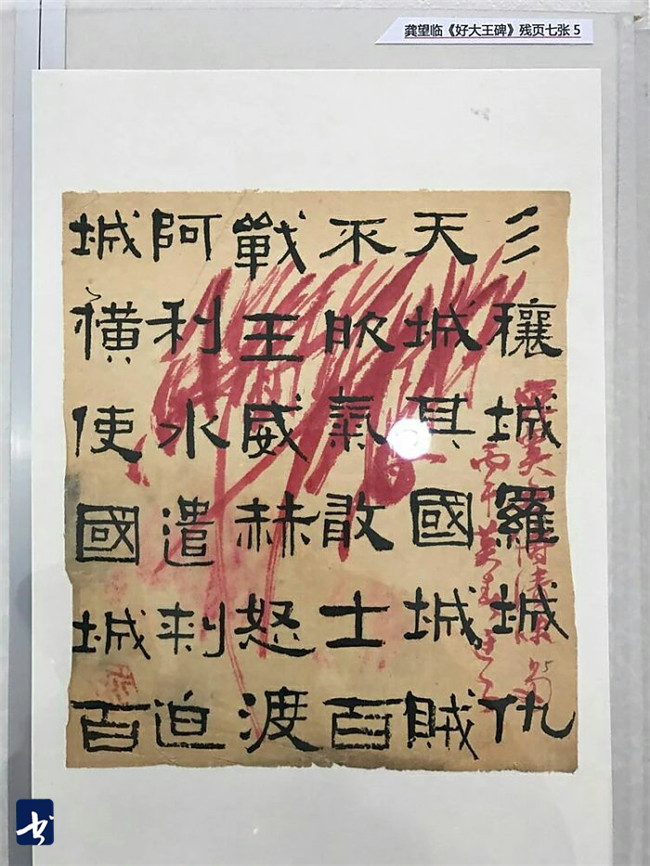 龚望临《好大王碑》残页七张 5
彡穰城羅城仇
天城其國城賊
不服氣敢士百
戰王威赫怒渡
阿利水遣刺迫
城橫使國城百
丙午莫春